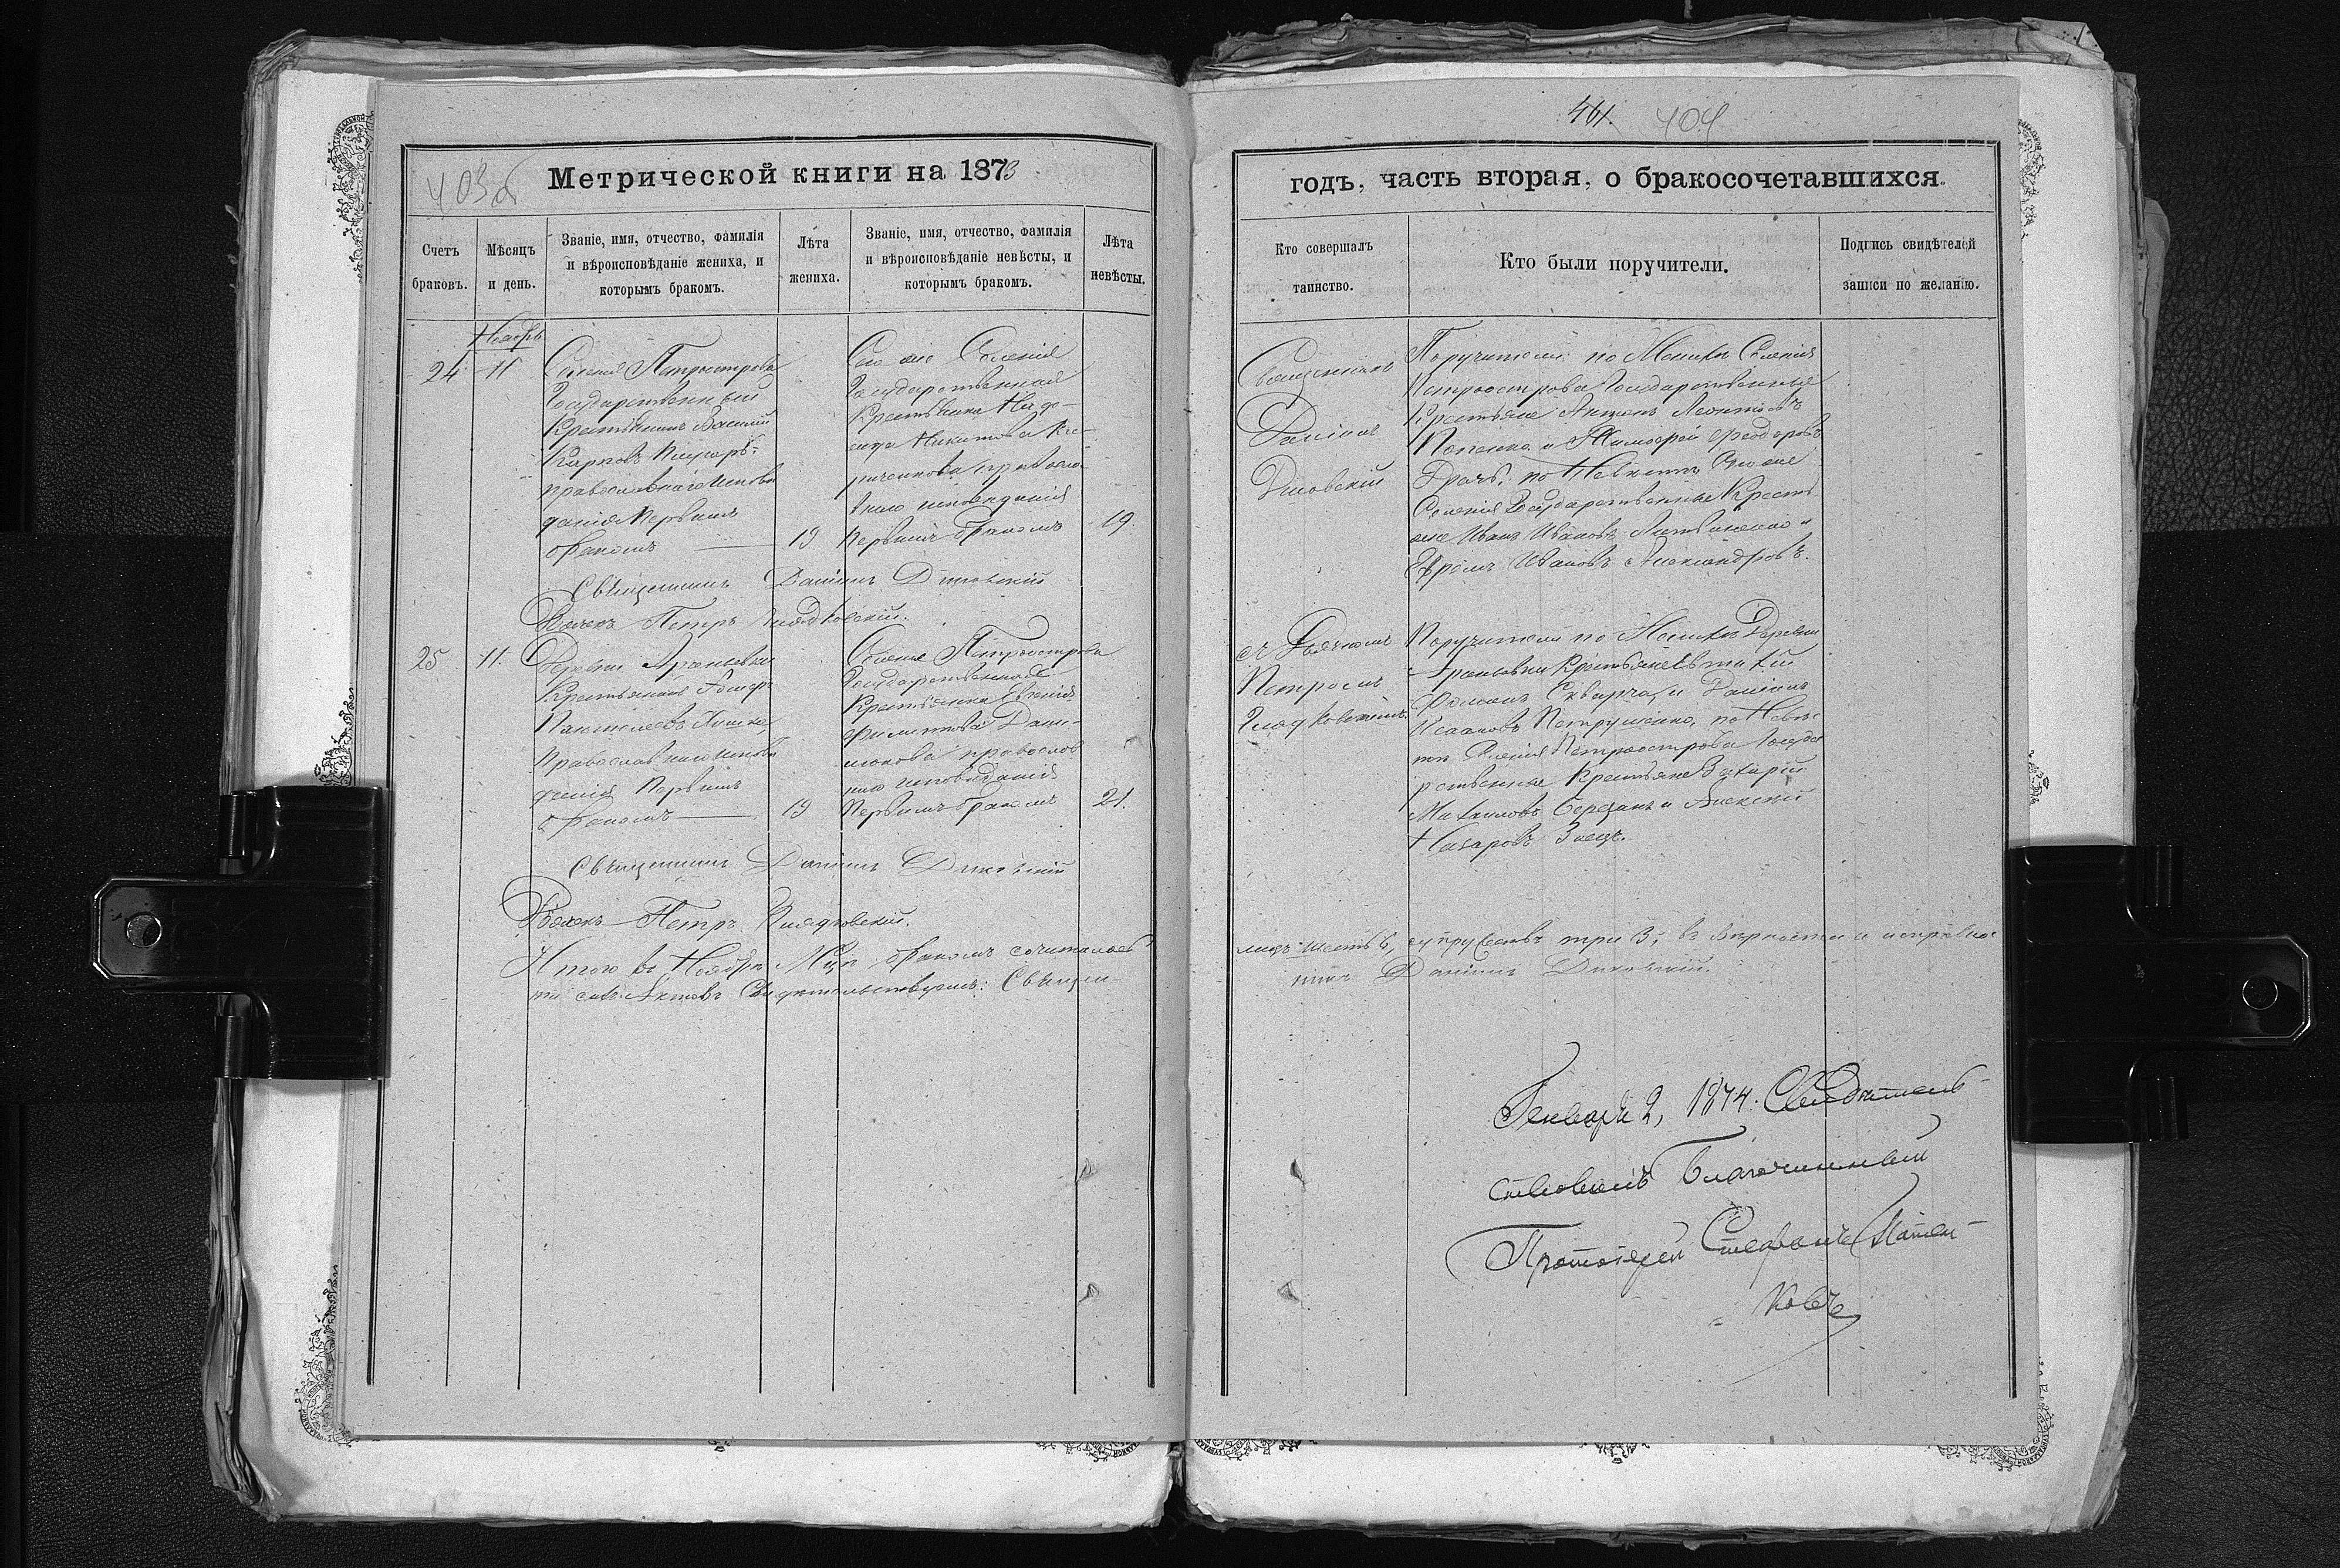 403об
Метрической книги на 1873
Счетъ браковъ.
Мѣсяцъ и день.
Званіе, имя, отчество, фамилія и вѣроисповѣданіе жениха, и которымъ бракомъ.
Лѣта жениха.
Званіе, имя, отчество, фамилія и вѣроисповѣданіе невѣсты, и которымъ бракомъ.
Лѣта невѣсты.
Ноябрь
24
11
Селенія Петроострова
Государственный
Крестьянинъ Василій
Карповъ
православнаго исповѣ
данія Первымъ
бракомъ
19
Того же Селенія
Государственная
Крестьянка
Никитова
правосла
внаго исповѣданія
Первымъ бракомъ
19.
Священникъ Даніилъ Диковскій
Дьячекъ Петръ Гладковскій.
25
11.
Деревни
Крестьянинъ
Православнаго исповѣ
данія Первымъ
бракомъ
19
Селенія Петроострова
Государственная
Крестьянка Евгенія
Филиппова Дани-
люкова православ
наго исповѣданія
Первымъ бракомъ
21.
Священникъ Даніилъ Диковскій
Дьячекъ Петръ Гладковскій.
Итого въ Ноябрѣ М-цѣ бракомъ сочиталось
ти сихъ Актовъ Свидѣтельствуемъ: Священ-
461.
404
годъ, часть вторая, о бракосочетавшихся.
Кто совершалъ таинство.
Кто были поручители.
Подпись свидѣтелей записи по желанію.
Священникъ
Даніилъ
Диковскій
съ Дьячкомъ
Петромъ
Гладковскимъ.
Поручители: по Женихѣ Селенія
Петроострова Государственные
Крестьяне Антонъ Леонтіевъ
Попенко и Тимофей Феодоровъ
Драчъ; по Невѣстѣ Того же
Селенія Государственные Кресть
яне Иванъ Ивановъ Литвиненко и
Ефремъ Ивановъ Александровъ.
Поручители по Женихѣ Деревни
Крестьяне Евтихій
и Даніилъ
Исааковъ Петрушенко, по Невѣс
тѣ Селенія Петроострова Госуда
рственные Крестьяне Захарій
Михаиловъ Березанъ и Алексій
Назаровъ Заецъ.
лицъ шесть 6, супружествъ три 3; въ вѣрности и исправнос
никъ Даніилъ Диковскій.
Генваря 2, 1874. Свидѣтель-
ствовалъ Благочинный
Протоіерей Стефанъ
ковъ